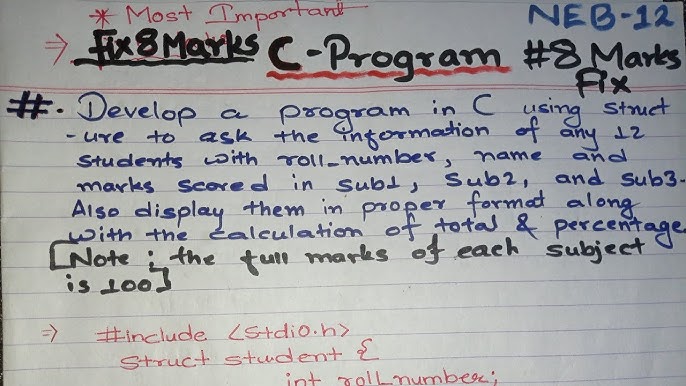 * Most Important
NEB-12
⇒ Fix 8 Marks C-Program #8 Marks
Fix
#. Develop a program in C using struct
-ure to ask the information of any 12
students with roll_number, name and
marks scored in sub1, sub2, and sub3.
Also display them in proper format along
with the calculation of total & percentage
[Note : the full marks of each subject
is 100]
⇒ #include <stdio.h>
struct student {
int roll_number;